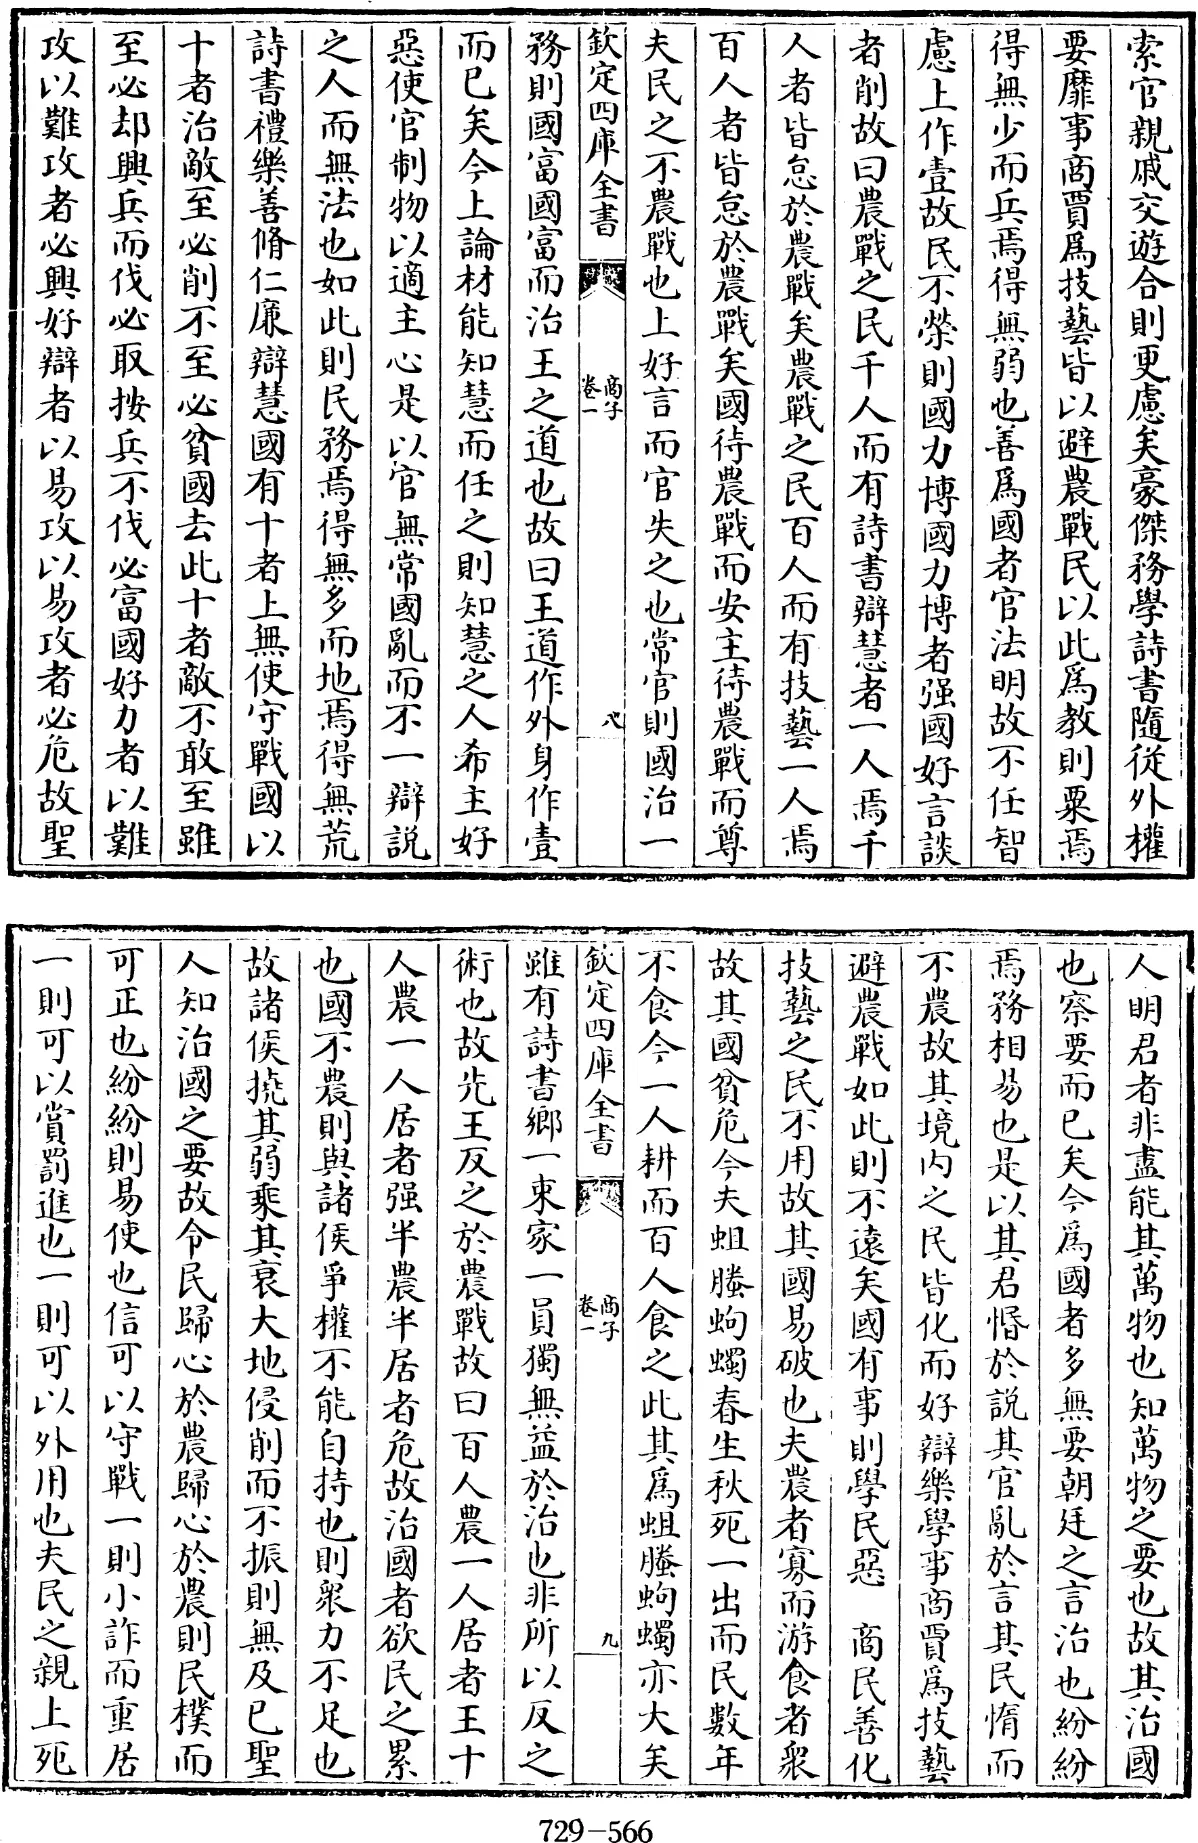 索官親戚交遊合則更慮矣豪傑務學詩書隨從外權
要靡事商賈爲技藝皆以避農戰民以此爲教則粟焉
得無少而兵焉得無弱也善爲國者官法明故不任智
慮上作壹故民不榮則國力博國力博者强國好言談
者削故曰農戰之民千人而有詩書辯慧者一人焉千
人者皆怠於農戰矣農戰之民百人而有技藝一人焉
百人者皆怠於農戰矣國待農戰而安主待農戰而尊
夫民之不農戰也上好言而官失之也常官則國治一
欽定四庫全書
商子
卷一
八
務則國富國富而治王之道也故曰王道作外身作壹
而已矣今上論材能知慧而任之則知慧之人希主好
惡使官制物以適主心是以官無常國亂而不一辯説
之人而無法也如此則民務焉得無多而地焉得無荒
詩書禮樂善脩仁廉辯慧國有十者上無使守戰國以
十者治敵至必削不至必貧國去此十者敵不敢至雖
至必却興兵而伐必取按兵不伐必富國好力者以難
攻以難攻者必興好辯者以易攻以易攻者必危故聖
人明君者非盡能其萬物也知萬物之要也故其治國
也察要而已矣今爲國者多無要朝廷之言治也紛紛
焉務相易也是以其君惛於説其官亂於言其民惰而
不農故其境内之民皆化而好辯樂學事商賈爲技藝
避農戰如此則不遠矣國有事則學民惡　商民善化
技藝之民不用故其國易破也夫農者寡而游食者衆
故其國貧危今夫蛆螣蚼蠋春生秋死一出而民數年
不食今一人耕而百人食之此其爲蛆螣蚼蠋亦大矣
欽定四庫全書
商子
卷一
九
雖有詩書鄉一束家一員獨無益於治也非所以反之
術也故先王反之於農戰故曰百人農一人居者王十
人農一人居者强半農半居者危故治國者欲民之累
也國不農則與諸侯爭權不能自持也則衆力不足也
故諸侯撓其弱乘其衰大地侵削而不振則無及已聖
人知治國之要故令民歸心於農歸心於農則民樸而
可正也紛紛則易使也信可以守戰一則小詐而重居
一則可以賞罰進也一則可以外用也夫民之親上死
729-566